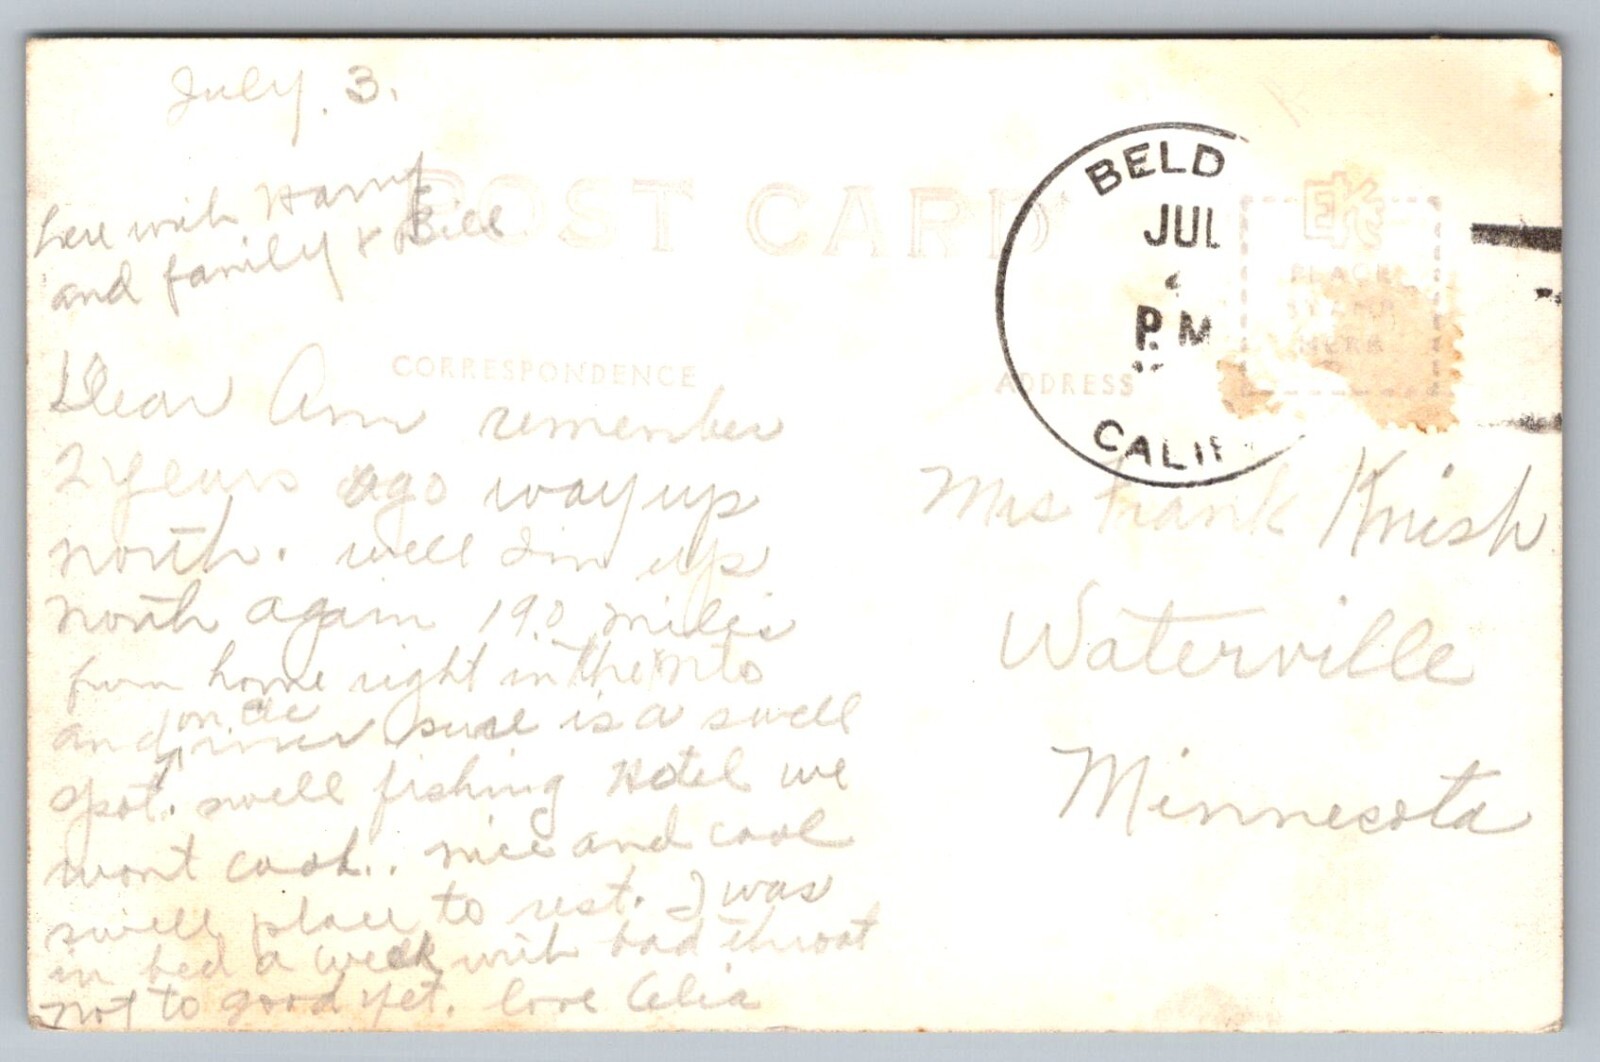 July. 3.
here with Harry
and family & Bill
POST CARD
CORRESPONDENCE
Dear Ann remember
2 years ago way up
north. well I'm up
north again 190 miles
from home right in the Mts
and on the river sure is a swell
spot. swell fishing Hotel we
wont cook.. nice and cool
swell place to rest. I was
in bed a week with bad throat
not to good yet. love Celia
BELD
JUL
P.M
CALIF
EKC
PLACE
STAMP
HERE
ADDRESS
Mrs Frank Knish
Waterville
Minnesota